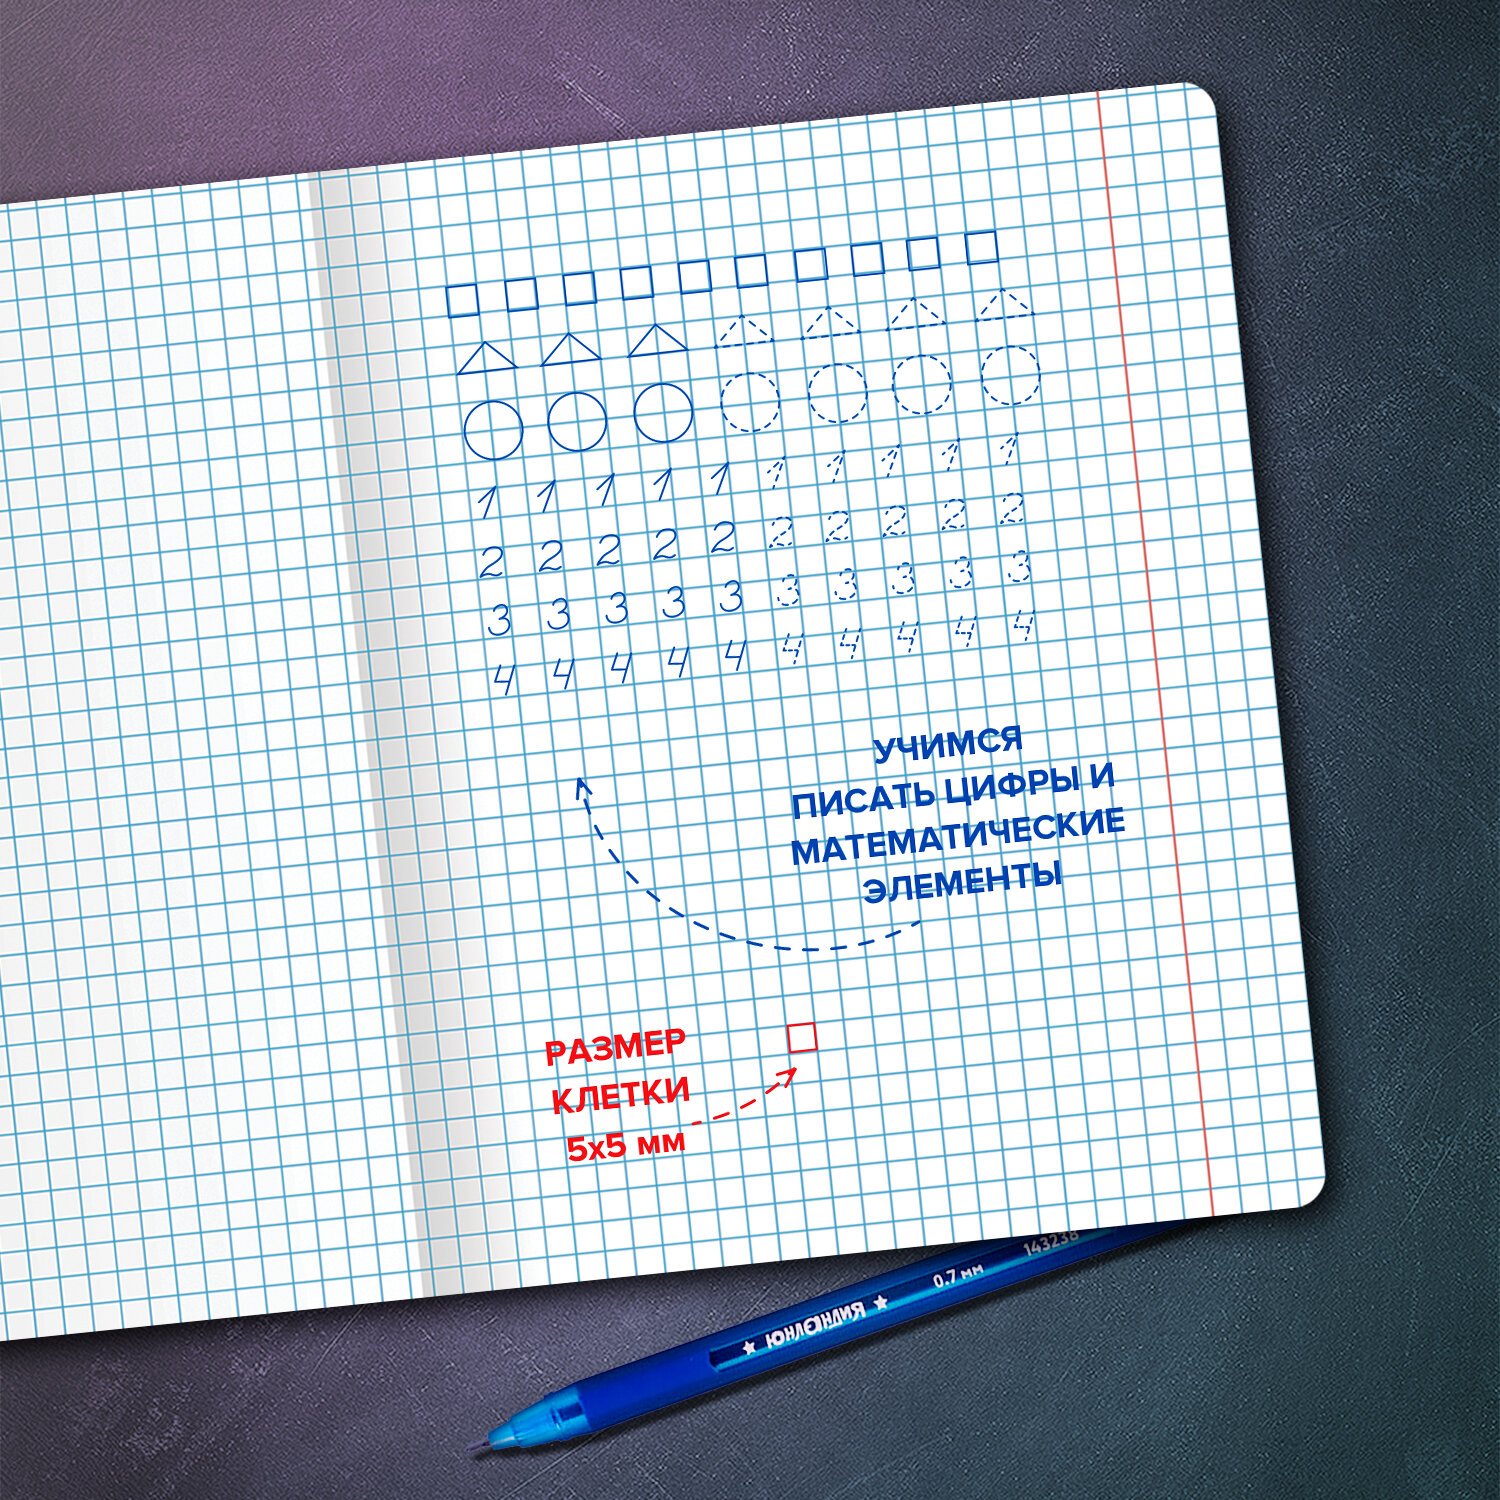 1 1 1 1 1 1 1 1 1 1
2 2 2 2 2 2 2 2 2 2
3 3 3 3 3 3 3 3 3 3
4 4 4 4 4 4 4 4 4 4
УЧИМСЯ
ПИСАТЬ ЦИФРЫ И
МАТЕМАТИЧЕСКИЕ
ЭЛЕМЕНТЫ
РАЗМЕР
КЛЕТКИ
5х5 мм
ЮНЛАНДИЯ 0.7 мм 143238